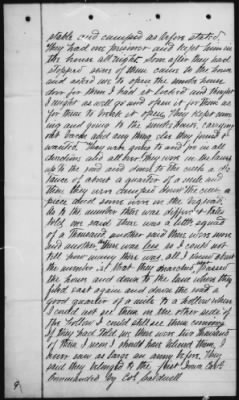 stable and camped as before stated.
They had me prisoner and kept him in
the house all night. Soon after they had
stopped some of them came to the house
and asked me to open the smoke house
door for them I had it locked and thought
I might as well go and open it for them as
for them to broke it open, They kept com
ing and going to the smoke house, carrying
out bacon and any thing else they found &
wanted. They were going to and fro in all
directions and all over. They were in the lane
up to the and down to the creek a dis
tance of about a quarter of a mile and
then they were camped down the creek a
piece and some were in the
As to the number there was different tales
told, one said there was a little squad
of a Thousand another said there was more
and another, there was less so I could not
tell how many there was. all I know about
the number is that they marched, passed
the house and down to the lane where they
turned east again and down the road a
good quarter of a mile to a hollow where
I could not see them on the other side of
the hollow I could still see them coming
if they had told me there were two Thousand
of them I would have believed them, I
never saw as large an army before, They
said they belonged to the first Iowa Cav.
Commanded by Col. Caldwell
9